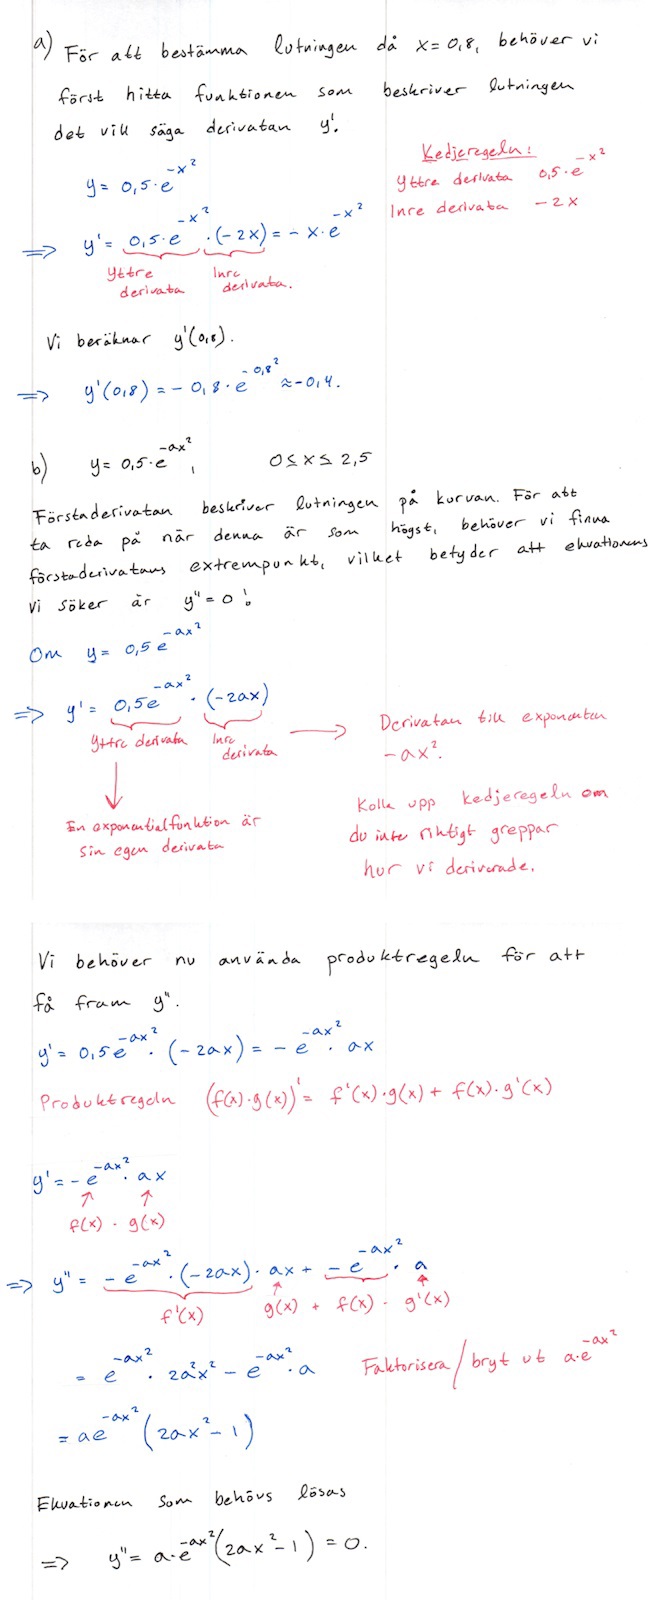 a) För att bestämma lutningen då x = 0,8, behöver vi
först hitta funktionen som beskriver lutningen
det vill säga derivatan y'.
Kedjeregeln:
y = 0,5·e^(-x²)
Yttre derivata 0,5·e^(-x²)
Inre derivata -2x
=> y' = 0,5·e^(-x²)·(-2x) = -x·e^(-x²)
Yttre derivata Inre derivata.
Vi beräknar y'(0,8).
=> y'(0,8) = -0,8·e^(-0,8²) ≈ -0,4.
b) y = 0,5·e^(-ax²), 0 ≤ x ≤ 2,5
Förstaderivatan beskriver lutningen på kurvan. För att
ta reda på när denna är som högst, behöver vi finna
förstaderivatans extrempunkt, vilket betyder att ekvationens
vi söker är y'' = 0!
Om y = 0,5e^(-ax²)
=> y' = 0,5e^(-ax²)·(-2ax)
Yttre derivata Inre derivata
Derivatan till exponenten
-ax².
En exponentialfunktion är
sin egen derivata
Kolla upp kedjeregeln om
du inte riktigt greppar
hur vi deriverade.
Vi behöver nu använda produktregeln för att
få fram y''.
y' = 0,5e^(-ax²)·(-2ax) = -e^(-ax²)·ax
Produktregeln (f(x)·g(x))' = f'(x)·g(x) + f(x)·g'(x)
y' = -e^(-ax²)·ax
f(x) · g(x)
=> y'' = -e^(-ax²)·(-2ax)·ax + -e^(-ax²)·a
f'(x) g(x) + f(x)· g'(x)
= e^(-ax²)·2a²x² - e^(-ax²)·a
Faktorisera/bryt ut a·e^(-ax²)
= ae^(-ax²)(2ax²-1)
Ekvationen som behövs lösas
=> y'' = a·e^(-ax²)(2ax²-1) = 0.